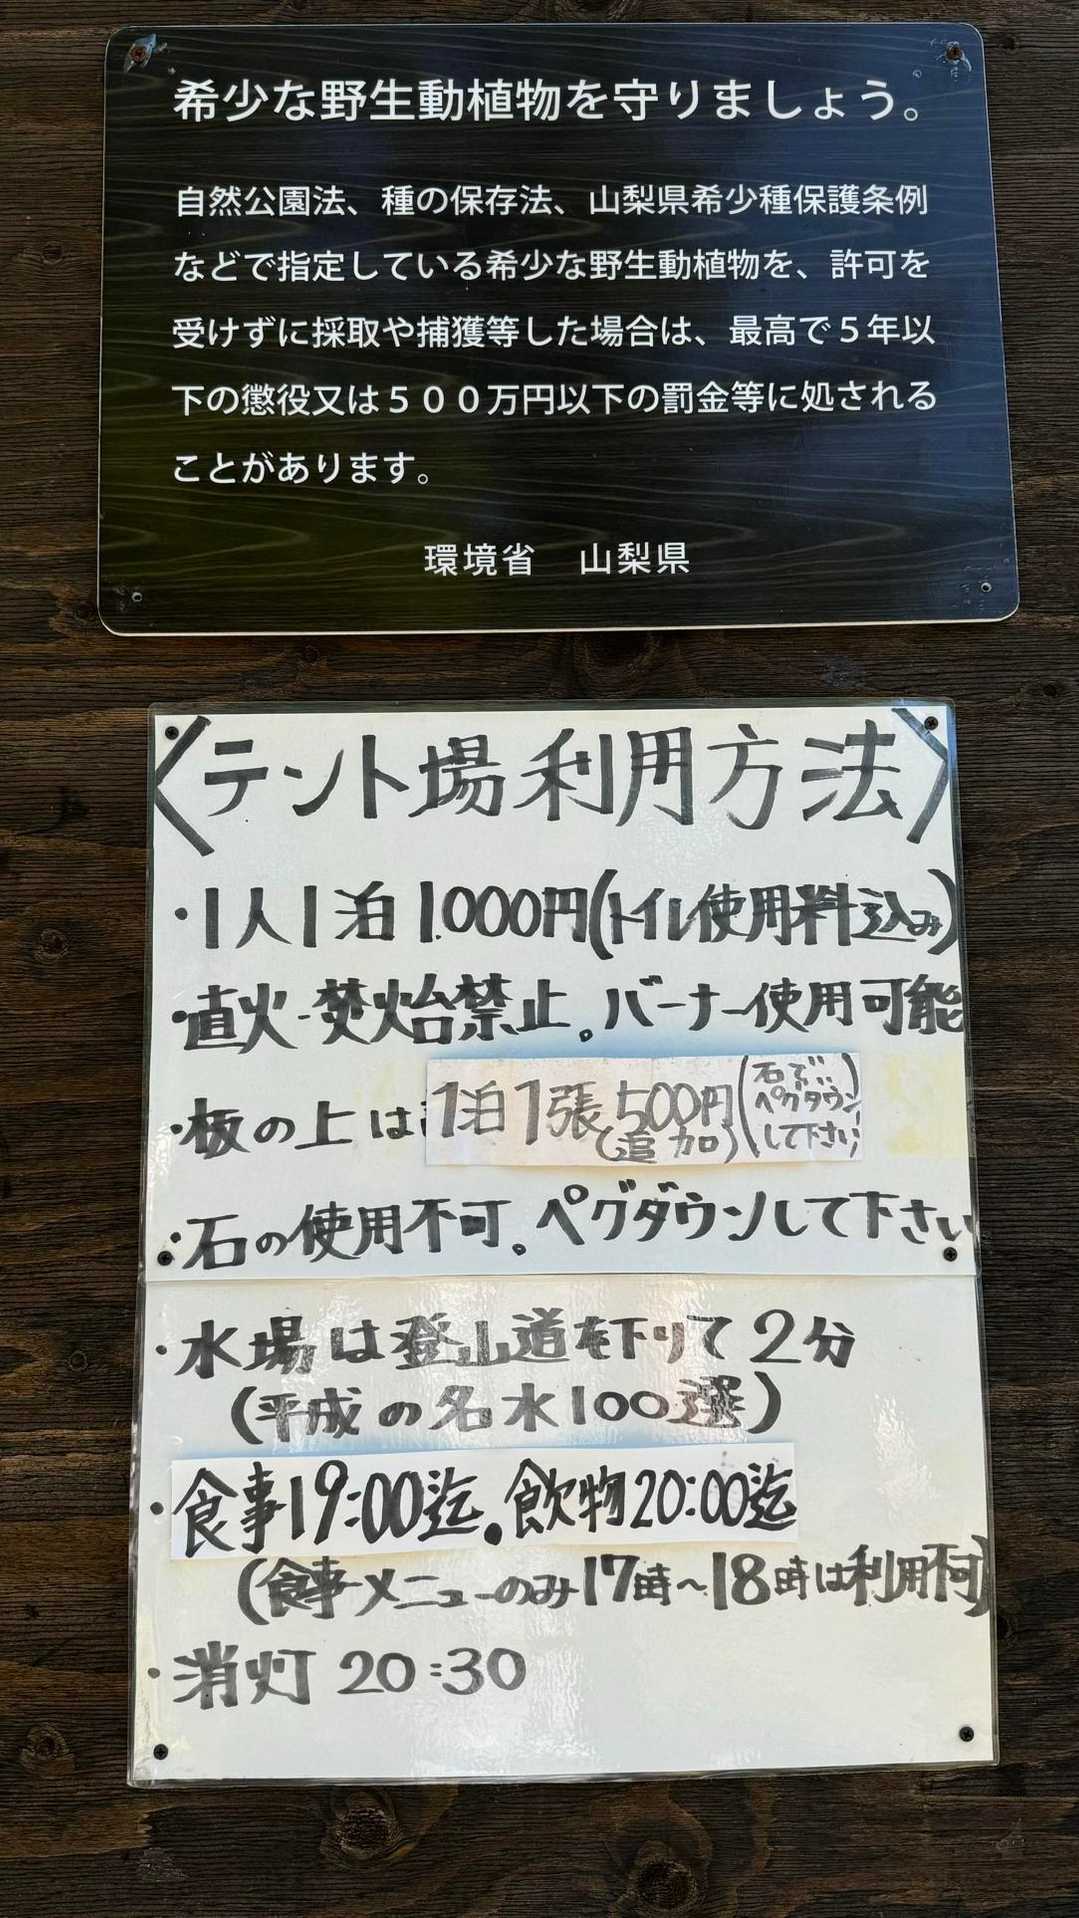 希少な野生動植物を守りましょう。
自然公園法、種の保存法、山梨県希少種保護条例
などで指定している希少な野生動植物を、許可を
受けずに採取や捕獲等した場合は、最高で５年以
下の懲役又は５００万円以下の罰金等に処される
ことがあります。
環境省　山梨県
〈テント場利用方法〉
・1人1泊 1.000円(トイレ使用料込み)
・直火・焚火台禁止。バーナー使用可能
・板の上は 1泊1張 500円(追加)
(石でペグダウンして下さい)
・石の使用不可。ペグダウンして下さい
・水場は登山道を下りて2分
(平成の名水100選)
・食事19:00迄。飲物20:00迄
(食事メニューのみ17時～18時は利用不可)
・消灯 20:30